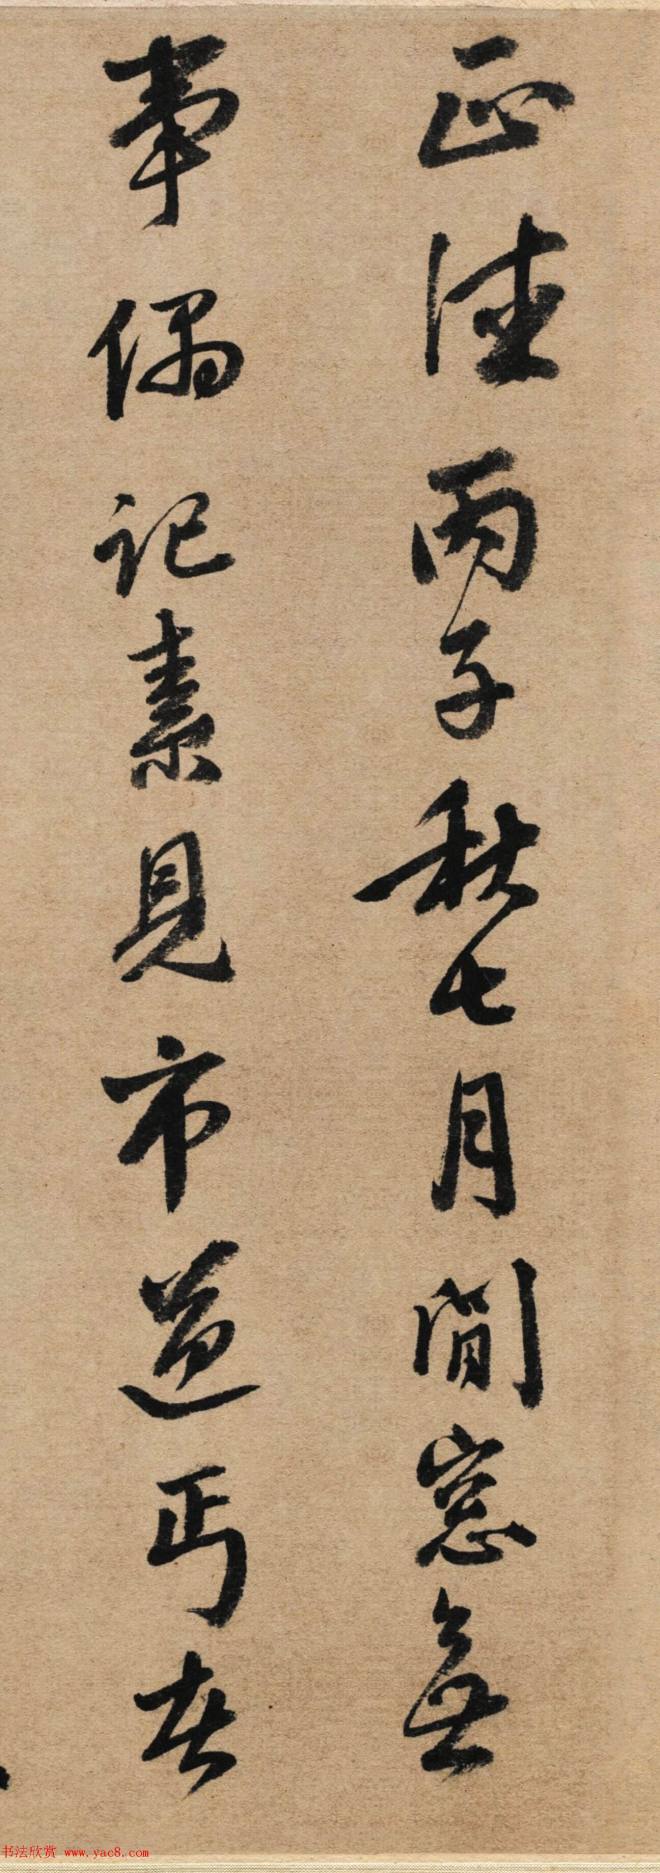 正德丙子秋七月閒窓無
事偶記素見市道丐者
书法欣赏 www.yac8.com